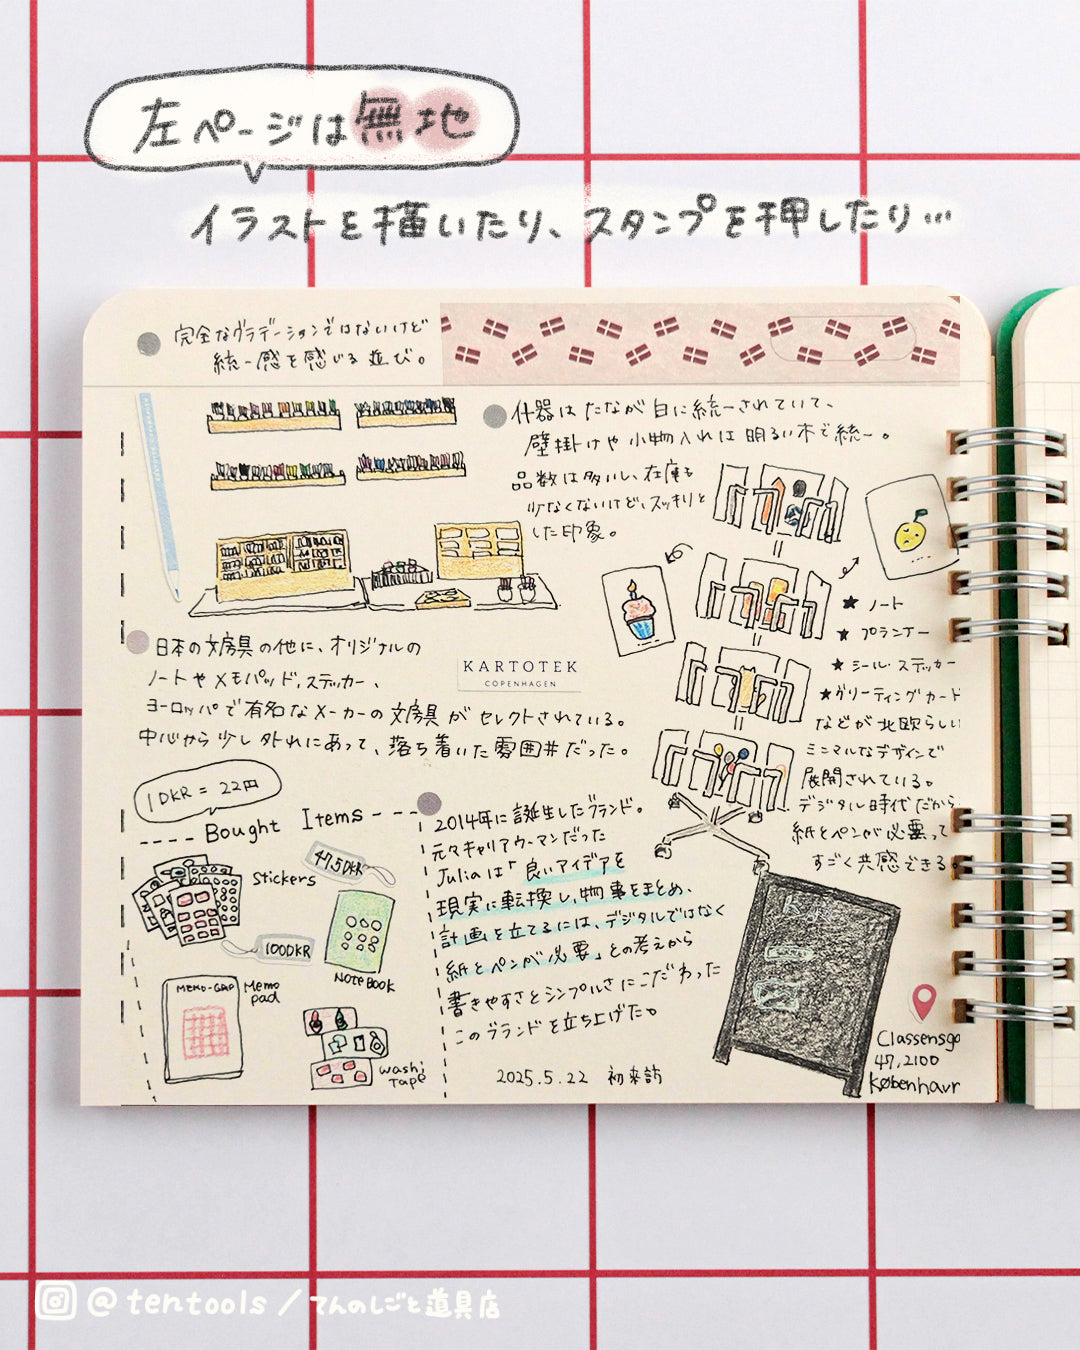 左ページは無地
イラストを描いたり、スタンプを押したり…
完全なグラデーションではないけど
統一感を感じる並び。
什器はたなが白に統一されていて、
壁掛けや小物入れは明るい木で統一。
品数は多いし、在庫も
少なくないけど、スッキリと
した印象。
★ ノート
★ プランナー
★ シール・ステッカー
★グリーティングカード
などが北欧らしい
ミニマルなデザインで
展開されている。
デジタル時代だから
紙とペンが必要って
すごく共感できる。
日本の文房具の他に、オリジナルの
ノートやメモパッド、ステッカー、
ヨーロッパで有名なメーカーの文房具がセレクトされている。
中心から少し外れにあって、落ち着いた雰囲井だった。
KARTOTEK
COPENHAGEN
1DKR = 22円
Bought Items
Stickers
47.5DKR
100DKR
NoteBook
MEMO-GAP
Memo
pad
washi
Tape
2014年に誕生したブランド。
元々キャリアウーマンだった
Juliaは「良いアイデアを
現実に転換し、物事をまとめ、
計画を立てるには、デジタルではなく
紙とペンが必要」との考えから
書きやすさとシンプルさにこだわった
このブランドを立ち上げた。
2025.5.22 初来訪
Classensga
47,2100
København
@tentools / てんのしごと道具店